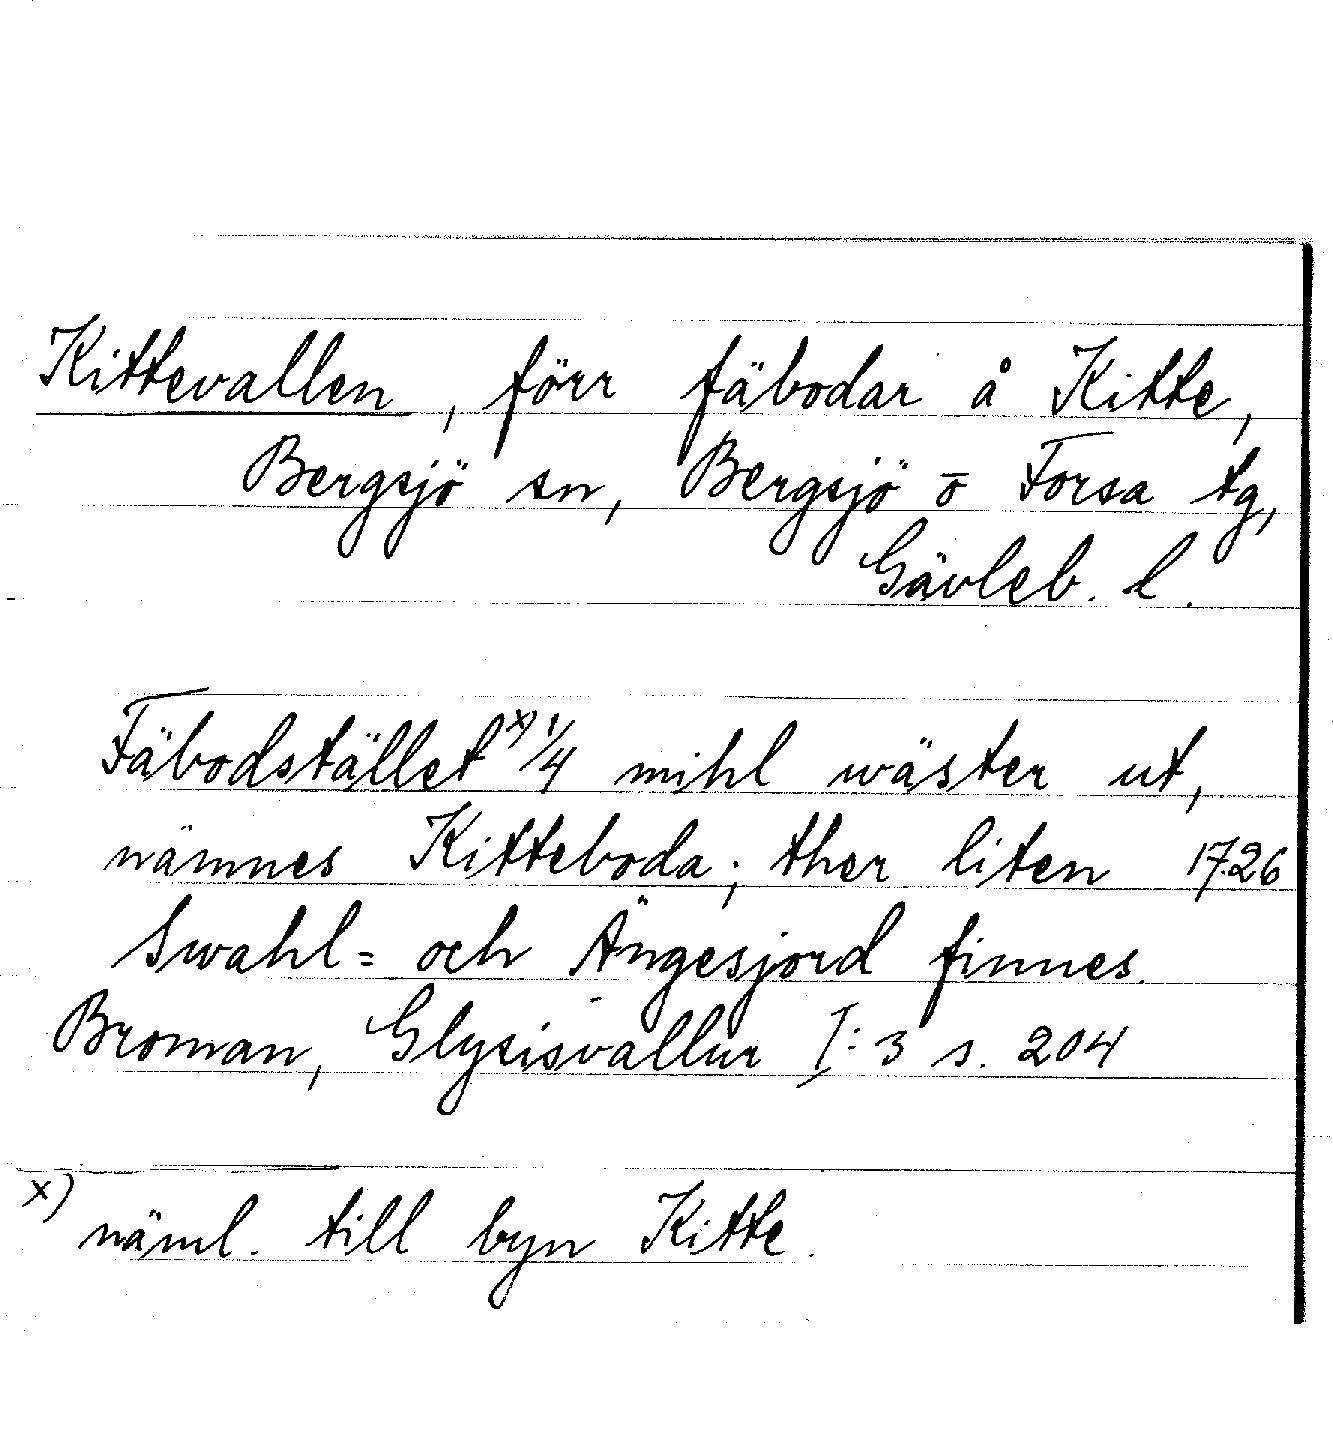 Kittevallen, förr fäbodar å Kitte,
Bergsjö sn, Bergsjö o Forsa tg,
Gävleb. l.
Fäbodstället x) 1/4 mihl wäster ut,
nämnes Kitteboda; ther liten 1726
Swahl= och Ängesjord finnes.
Broman, Glysisvallur I:3 s. 204
x) näml. till byn Kitte.